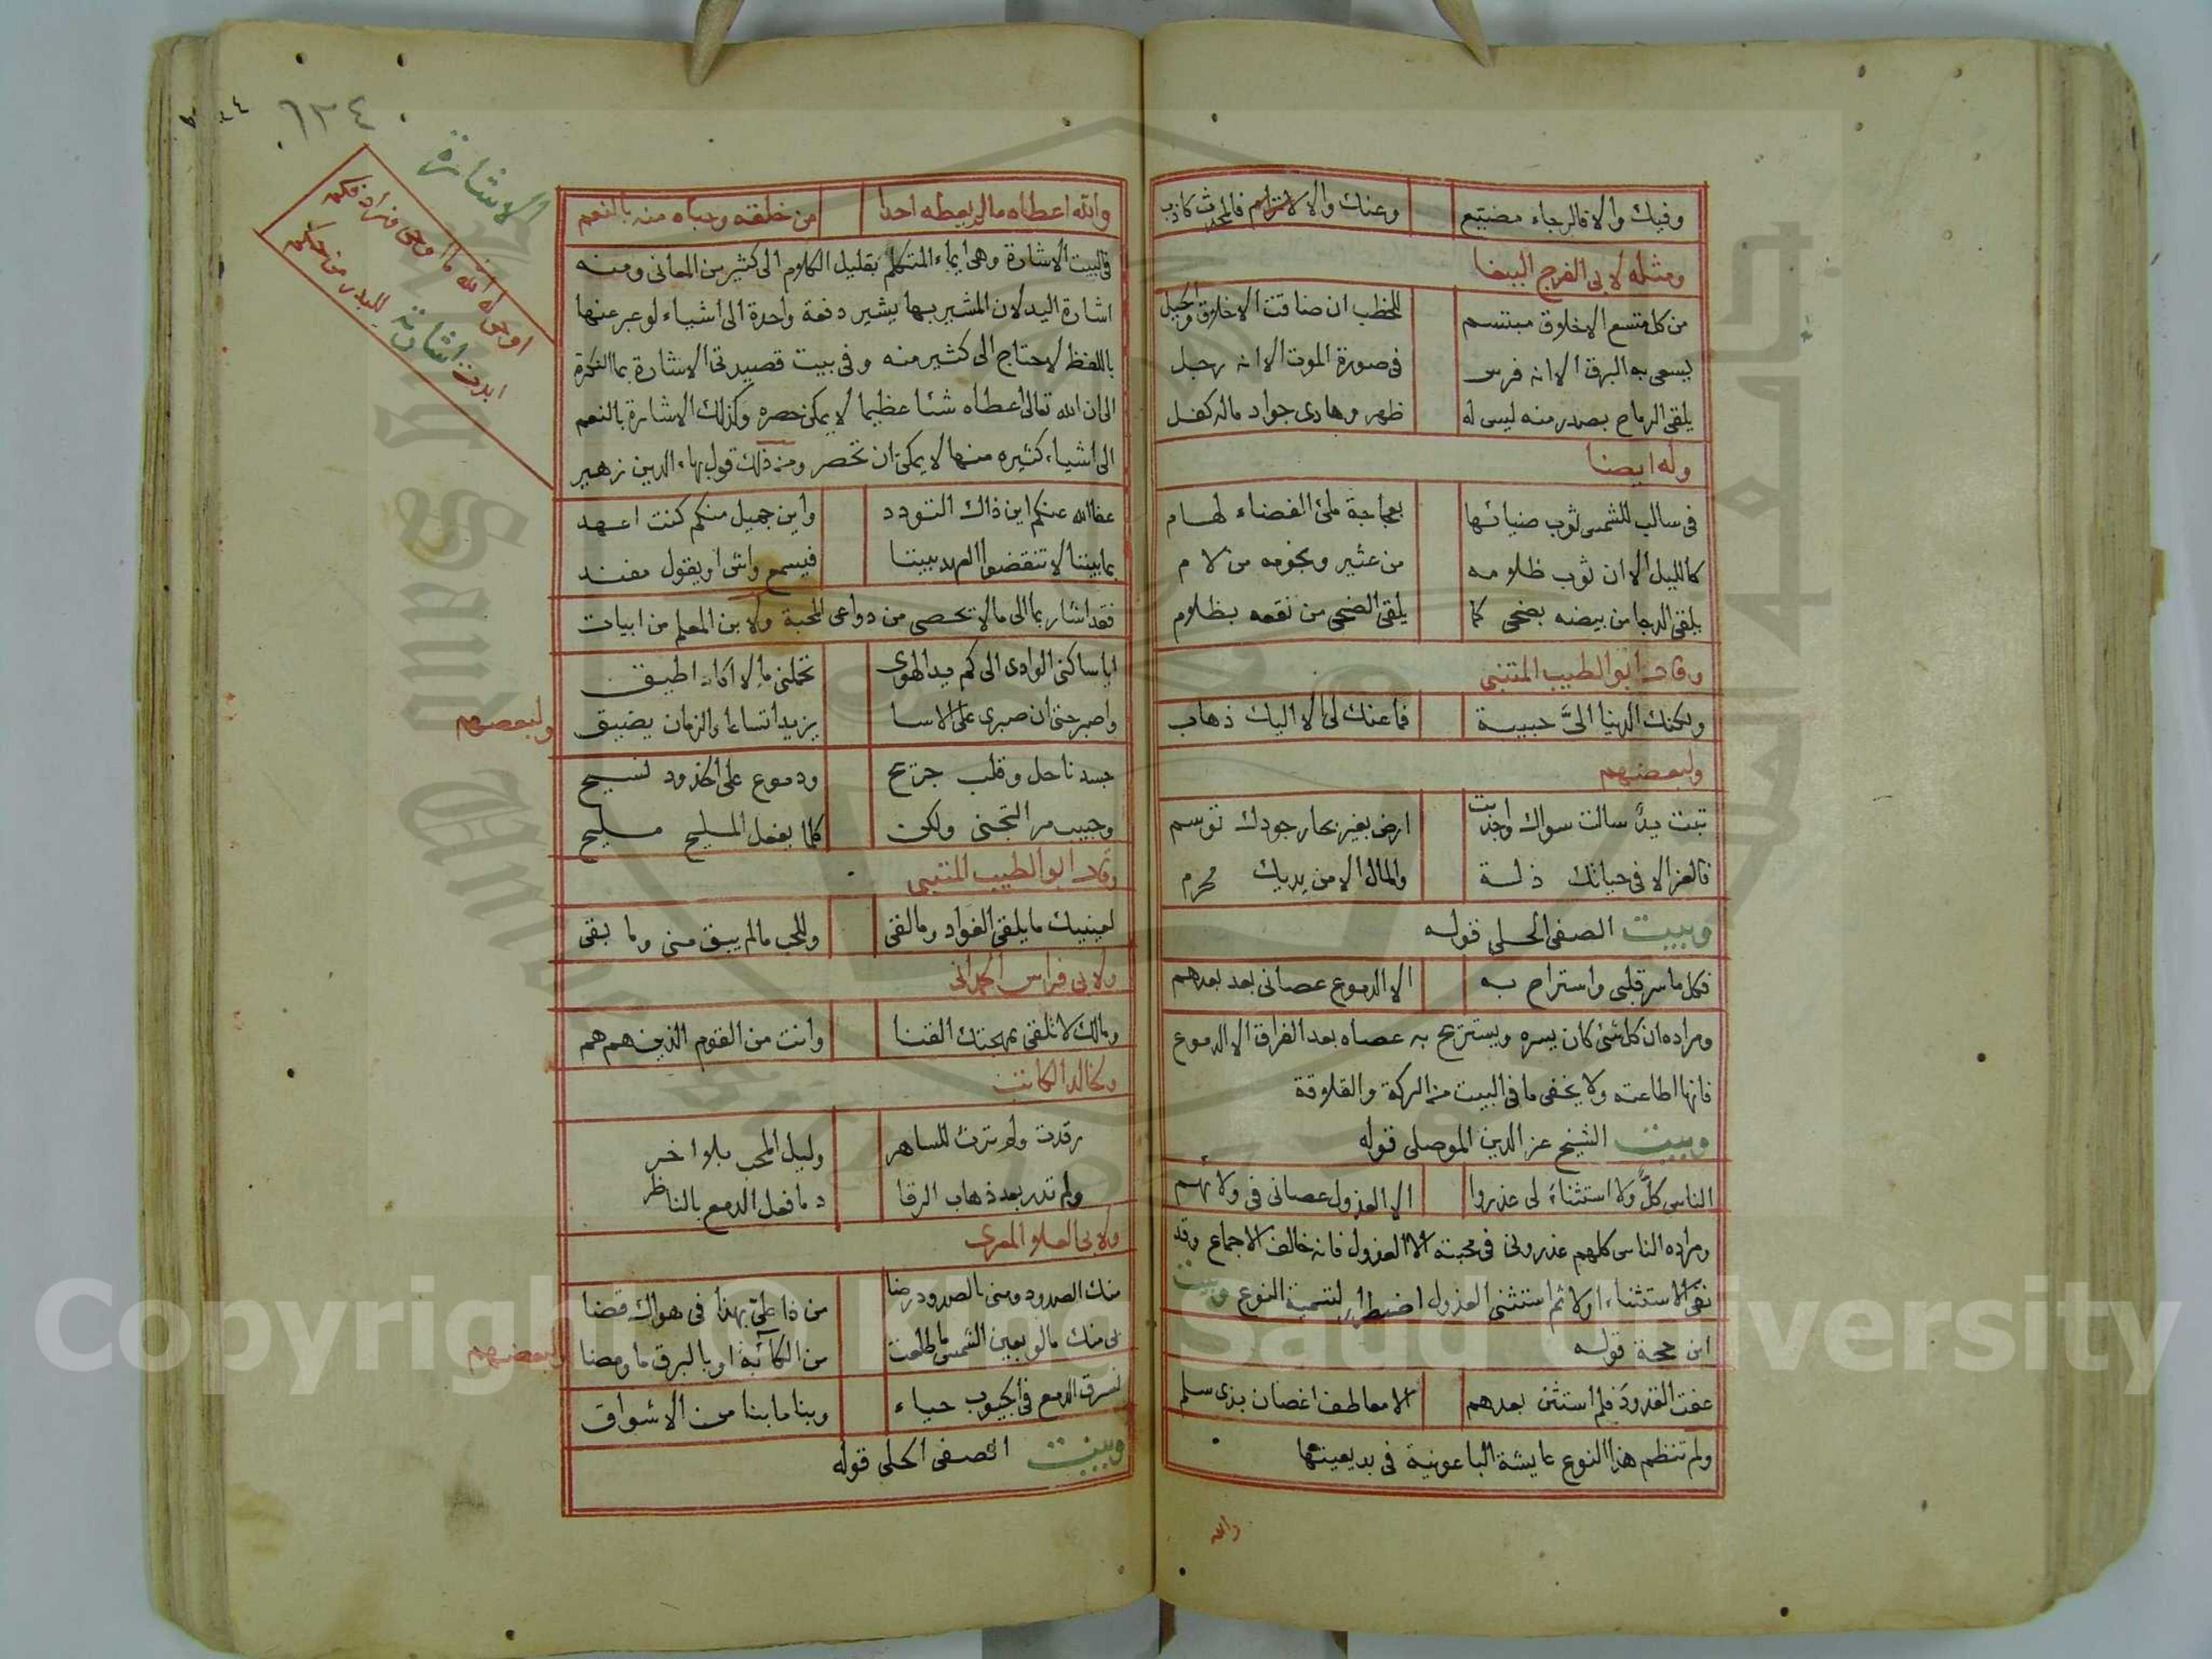 وفيك والا فالرجاء مضيع وعنك والا فالمحدث كاذب
ومثله لابي الفرج الببغا
من كل متسع الاخلاق مبتسم للخطب ان ضاقت الاخلاق والحيل
يسعى به البرق الا انه فرس في صورة الموت الا انه رجل
يلقى الرماح بصدر منه ليس له ظهر وهادى جواد ماله كفل
وله ايضا
في سالب للشمس ثوب ضيائها بعجاجة ملئ الفضاء لهام
كالليل الا ان ثوب ظلامه من عثير ونجومه من لام
يلقى الدجا من بيضه بضحى كما يلقى الضحى من نقعه بظلام
وقال ابو الطيب المتنبي
ولكنك الدنيا الىّ حبيبة فما عنك لى الا اليك ذهاب
ولبعضهم
تبت يدٌ سالت سواك واجدبت ارض بغير بحار جودك توسم
فالعز الا في حياتك ذلة والمال الا من يديك محرم
وبيت الصفى الحلى قوله
فكل ما سر قلبى واستراح به الا الدموع عصانى بعد بعدهم
ومراده ان كل شئ كان يسره ويستريح به عصاه بعد الفراق الا الدموع
فانها اطاعته ولا يخفى ما في البيت من الركة والقلاقة
وبيت الشيخ عز الدين الموصلى قوله
الناس كلٌّ ولا استثناءَ لى عذروا الا العذول عصانى في ولائهم
ومراده الناس كلهم عذرونى في محبته الا العذول فانه خالف الاجماع وقد
نفى الاستثناء اولا ثم استثنى العذول اضطرار لتسمية النوع وبيت
ابن حجة قوله
عفت القدود فلم استثن بعدهم الا معاطف اغصان بذى سلم
ولم تنظم هذا النوع عايشة الباعونية في بديعيتها
والله
١٣٤
الاشارة
اوحى له الله ما اوحى فزاد فكم
ابدت اشارته للبدر من حكم
والله اعطاه مالم يعطه احدا من خلقه وحباه منه بالنعم
في البيت الاشارة وهى ايماء المتكلم بقليل الكلام الى كثير من المعانى ومنه
اشارة اليد لان المشير بها يشير دفعة واحدة الى اشياء لو عبر عنها
باللفظ لاحتاج الى كثير منه وفي بيت قصيدتى الاشارة بما النكرة
الى ان الله تعالى اعطاه شئا عظيما لا يمكن حصره وكذلك الاشارة بالنعم
الى اشياء كثيره منها لا يمكن ان تحصر ومن ذلك قول بهاء الدين زهير
عفا الله عنكم اين ذاك التودد واين جميل منكم كنت اعهد
بما بيننا لا تنقضوا العهد بيننا فيسمع واش او يقول مفند
فقد اشار بما الى مالا تحصى من دواعى المحبة ولابن المعلم من ابيات
ايا ساكنى الوادى الى كم يد الهوى تحملنى ما لا اكاد اطيق
واصبر حتى ان صبرى على الاسا يزيد اتساعا والزمان يضيق
ولبعضهم
جسد ناحل وقلب جريح ودموع على الخدود تسيح
وحبيب مر التجنى ولكن كلما يفعل المليح مليح
وقال ابو الطيب المتنبي
لعينيك ما يلقى الفؤاد وما لقى وللحب مالم يبق منى وما بقى
ولابى فراس الحمدانى
ومالك لا تلقى بمهجتك القنا وانت من القوم الذين هم هم
ولخالد الكاتب
رقدت ولم ترث للساهر وليل المحب بلا اخر
ولم تدر بعد ذهاب الرقا د ما فعل الدمع بالناظر
ولابى العلا المعرى
منك الصدود ومنى بالصدود رضا من ذا علىّ بهذا في هواك قضا
بى منك مالو بعين الشمس ما طلعت من الكآبة او بالبرق ما ومضا
ولبعضهم
نسرق الدمع في الجيوب حياء وبنا ما بنا من الاشواق
وبيت الصفى الحلى قوله
Copyright © King Saud University